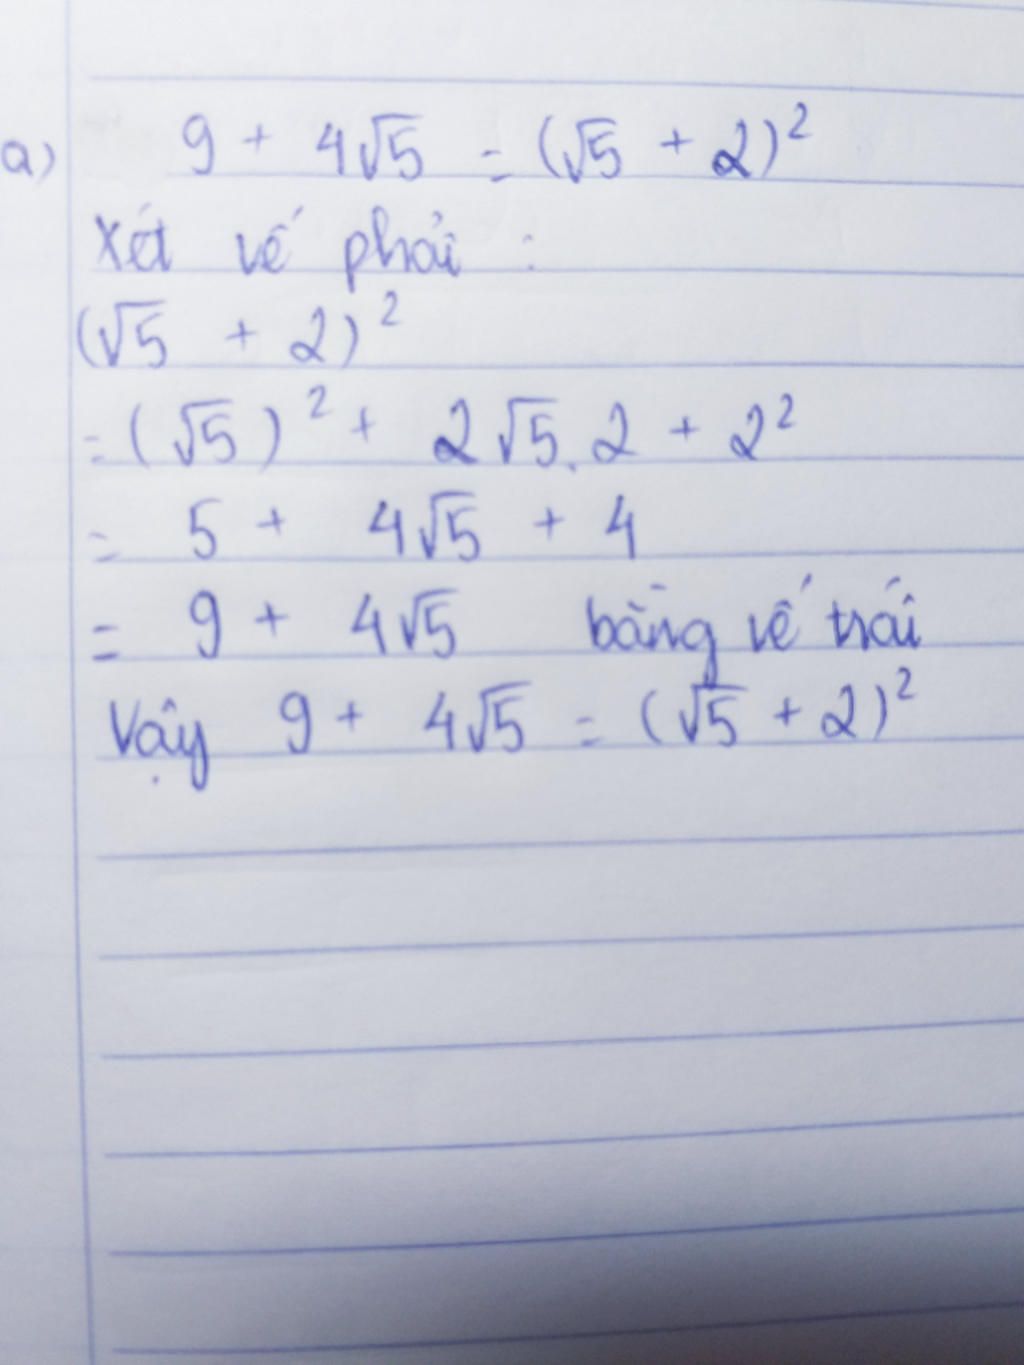 a) 9 + 4√5 = (√5 + 2)²
Xét vế phải :
(√5 + 2)²
= (√5)² + 2√5.2 + 2²
= 5 + 4√5 + 4
= 9 + 4√5 bằng vế trái
Vậy 9 + 4√5 = (√5 + 2)²